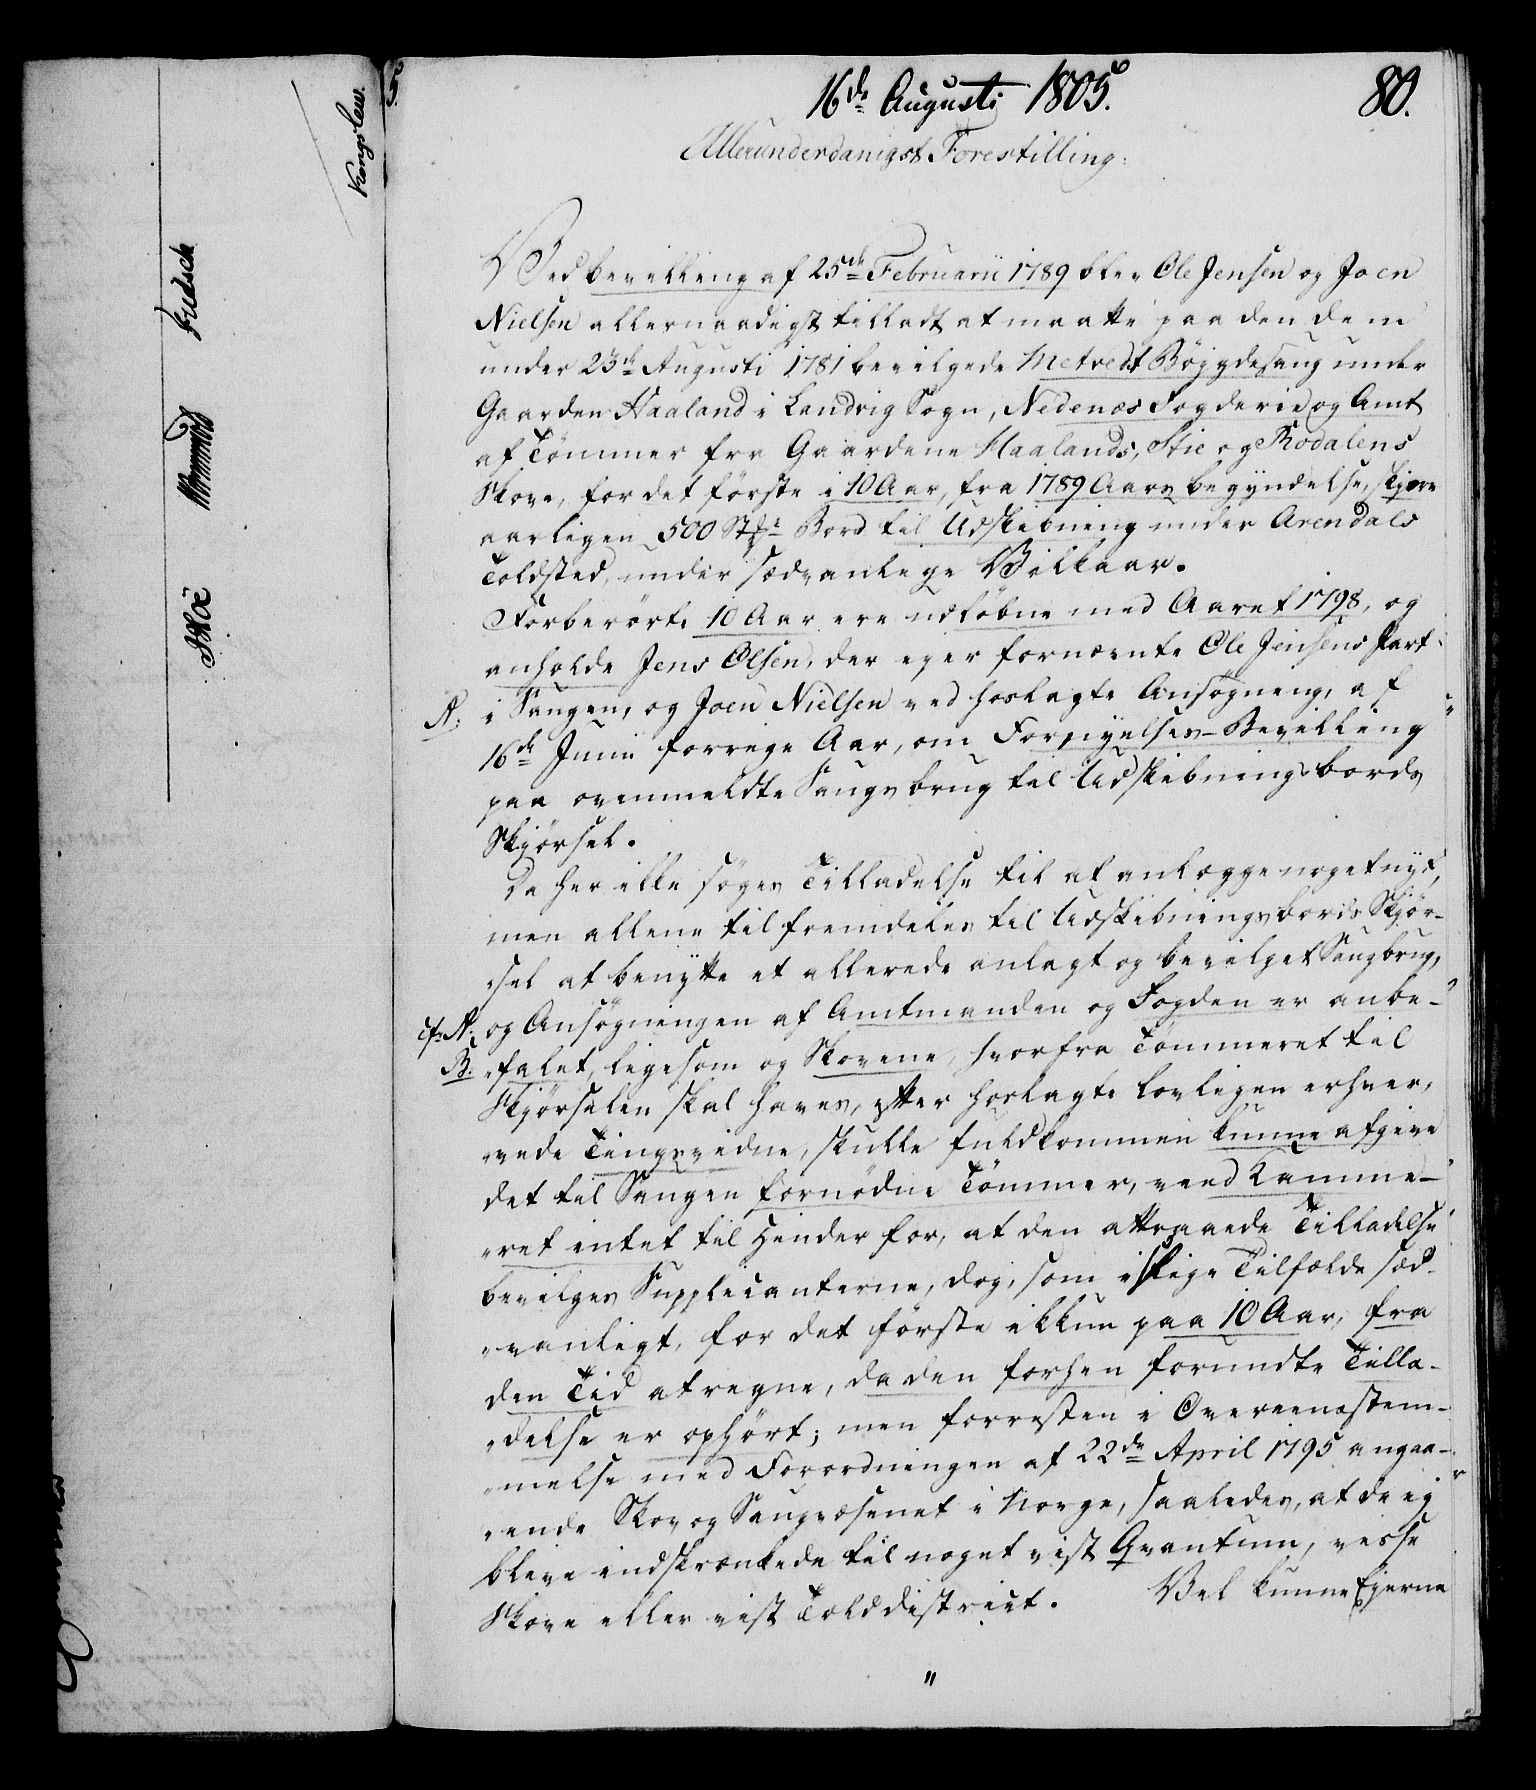 16de Augusti 1805. 80.
Allerunderdanigst Forestilling.
Ved bevilling af 25de Februarii 1789 blev Ole Jensen og Joen
Nielsen allernaadigst tilladt at maatte paa den dem
under 23de Augusti 1781 bevilgede Metvedt Böygdesaug under
Gaarden Haaland i Landvig Sogn, Nedenæs Fogderie og Amt
af Tömmer fra Gaardene Haalands, Stie og Rodalens
Skove, for det förste i 10 Aar, fra 1789 Aars begyndelse, skjære
aarligen 500 Stkr Bord til Udskibning under Arendals
Toldsted, under sædvanlige Vilkaar.
Forberörte 10 Aar ere udløbne med Aaret 1798, og
anholde Jens Olsen, der ejer fornævnte Ole Jensens Part
A. i Saugen, og Joen Nielsen ved hoslagte Ansögning, af
16de Junii forrige Aar, om Fornyelses-Bevilling
paa ovenmeldte Saugs brug til Udskibningsbords
Skjörsel.
Da her ikke söges Tilladelse til at anlægge noget nyt,
men allene til fremdeles til Udskibningsbords Skjör-
sel at benytte et allerede anlagt og bevilget Saugbrug,
cfr A. og Ansögningen af Amtmanden og Fogden er anbe-
B. falet, ligesom og Skovene, hvorfra Tömmeret til
Skjörselen skal haves, efter hoslagte lovligen erhver-
vede Tingsvidne, skulle fuldkommen kunne afgive
det til Saugen fornödne Tömmer, veed Kamme-
ret intet til Hinder for, at den attraaede Tilladelse
bevilges Supplicanterne, dog, som i slige Tilfælde sæd-
vanligt, for det förste ikkun paa 10 Aar, fra
den Tid at regne, da den forhen forundte Tilla-
delse er ophört; men forresten i Overeensstem-
melse med Forordningen af 22de April 1795 angaa-
ende Skov og Saugvæsenet i Norge, saaledes, at de ej
blive indskrænkede til noget vist Qvantum, visse
Skove eller vist Tolddistrict. Vel kunne Ejerne